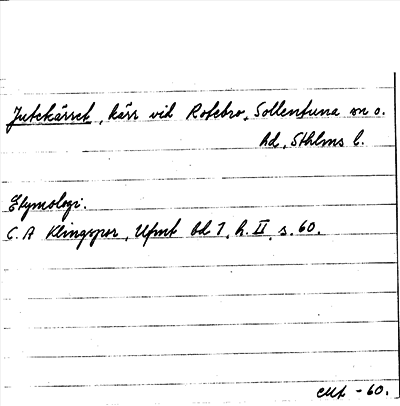 Jutekärret, kärr vid Rotebro, Sollentuna sn o.
hd, Sthlms l.
Etymologi.
C. A Klingspor, Upmt bd 7, h. II, s. 60.
-60.